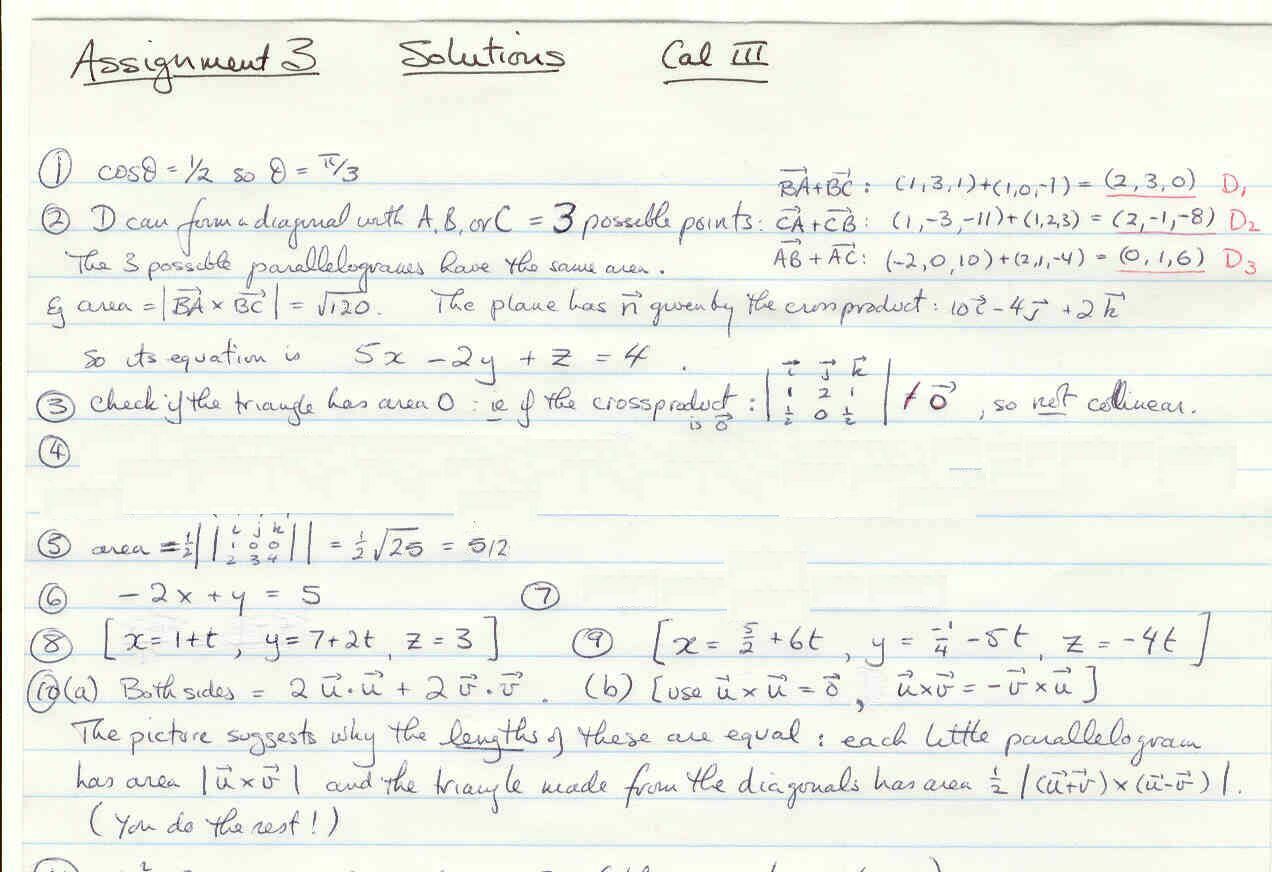 Assignment 3 Solutions Cal III
① cosθ = 1/2 so θ = π/3
BA+BC : (1,3,1)+(1,0,-1) = (2,3,0) D₁
② D can form a diagonal with A, B, or C = 3 possible points: CA+CB: (1,-3,-11)+(1,2,3) = (2,-1,-8) D₂
The 3 possible parallelograms have the same area. AB + AC: (-2,0,10)+(2,1,-4) = (0,1,6) D₃
Eg area = |BA × BC| = √120. The plane has n given by the crossproduct: 10i - 4j + 2k
So its equation is 5x - 2y + z = 4.
③ Check if the triangle has area 0 : ie if the crossproduct is 0 : | i j k
1 2 1
1/2 0 1/2 | ≠ 0, so not collinear.
④
⑤ area = 1/2 | | i j k
1 0 0
2 3 4 | | = 1/2 √25 = 5/2
⑥ -2x + y = 5 ⑦
⑧ [x = 1+t, y = 7+2t, z = 3] ⑨ [x = 5/2 + 6t, y = -1/4 - 5t, z = -4t]
⑩(a) Both sides = 2 u·u + 2 v·v. (b) [use u × u = 0, u×v = -v×u]
The picture suggests why the lengths of these are equal : each little parallelogram
has area |u×v| and the triangle made from the diagonals has area 1/2 |(u+v)×(u-v)|.
(You do the rest!)